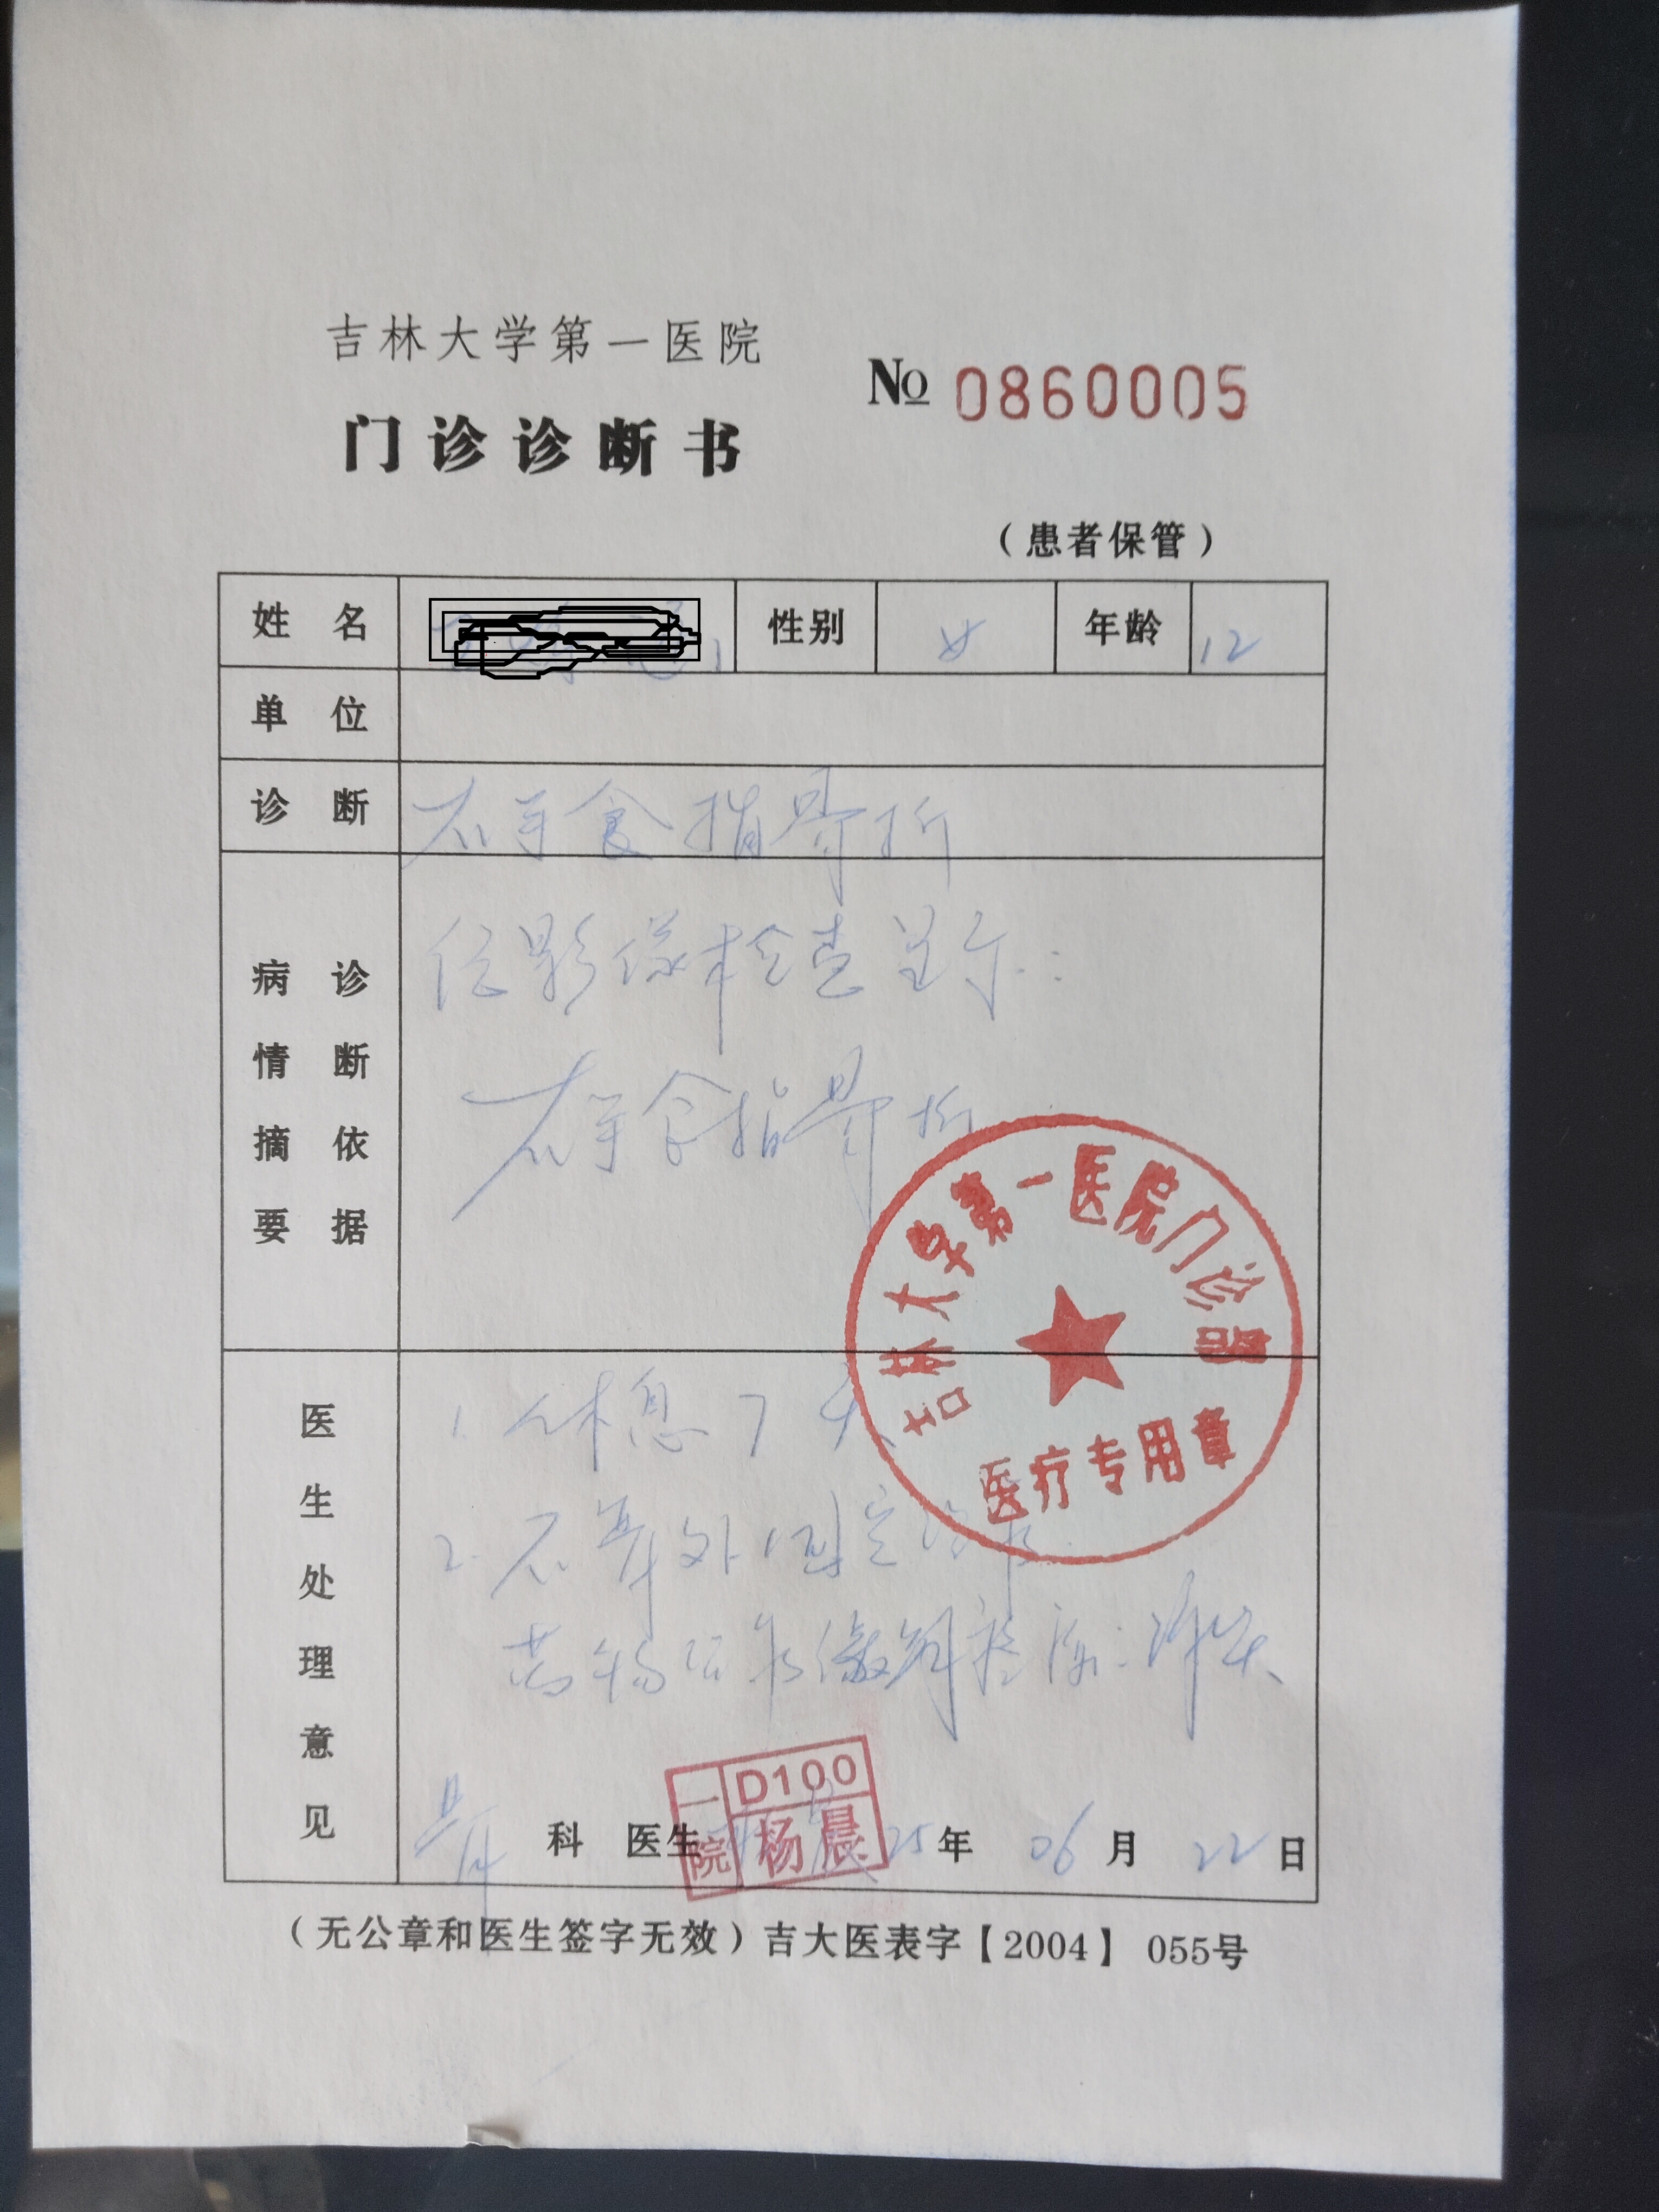 吉林大学第一医院
№ 0860005
门诊诊断书
（患者保管）
姓名 性别 女 年龄 12
单位
诊断 右手食指骨折
病情摘要 诊断依据
影像检查显示：
右手食指骨折
吉林大学第一医院门诊部
医疗专用章
医生处理意见
1. 休息7天
2. 外固定
骨 科 医生 25年 06月 22日
一院 D100 杨晨
（无公章和医生签字无效）吉大医表字【2004】055号